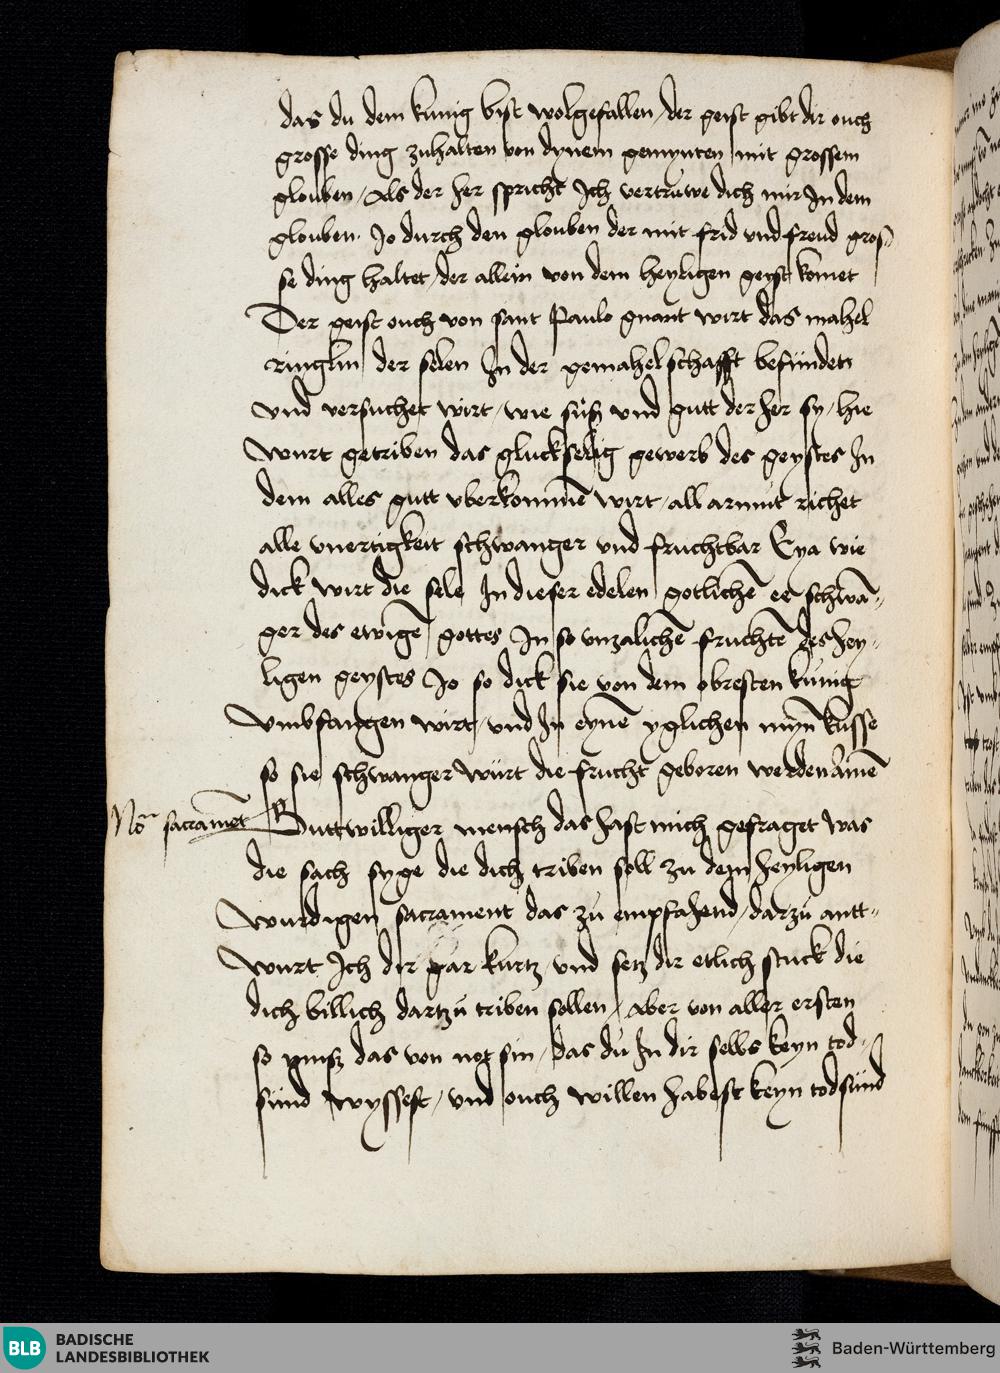 das du dem kunig bist wolgefallen / der geist gibt dir ouch
grosse ding zuhalten von dynem gemynten mit grossem
glouben / Als der her spricht Ich vertruwe dich mir In dem
glouben. Jo durch den glouben der mit frid vnd freud gros⸗
se ding haltet / der allein von dem heyligen geyst komet
Der geist ouch von sant Paulo gnant wirt das mahel
ringlin der selen In der gemahelschafft befunden
vnd versuchet wirt / wie süsz vnd gutt der her sy / hie
wurt getriben das gluckselig gewerb des geystes In
dem alles gutt vberkommē wirt / all armut richet
alle vnertigkeit schwanger vnd fruchtbar Eya wie
dick wirt die sele In dieser edelen gotlichē ee schwā⸗
ger des ewigē gottes In so vnzalichē fruchtē des hey⸗
ligen geystes Jo so dick sie von dem obresten kunig
vmbfangen wirt / vnd In eynē yglichen mynē kusse
so sie schwanger würt die frucht geboren werden Amē
Nō sacramēt Guttwilliger mensch das hast mich gefraget was
die sach syge die dich triben soll zu dem heyligen
wurdigen sacrament das zů empfahend / darzů antt⸗
wurt Ich dir gar kurtz vnd setz dir etlich stuck die
dich billich dartzů triben sollen / Aber von aller ersten
so musz das von not sin / das du In dir selbs keyn tod⸗
sünd wyssest / vnd ouch willen habest keyn todsünd
BLB BADISCHE
LANDESBIBLIOTHEK
Baden-Württemberg